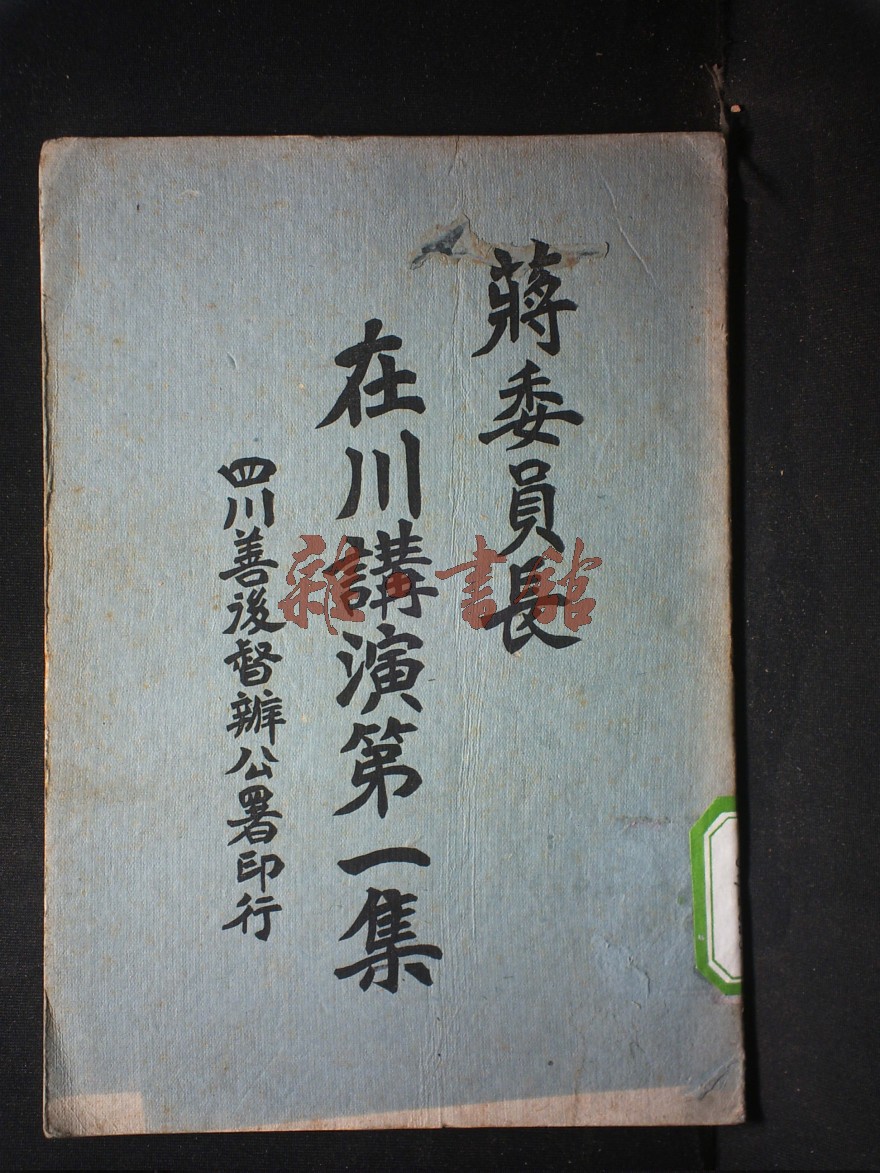 蔣委員長
在川講演第一集
四川善後督辦公署印行
雜·書館